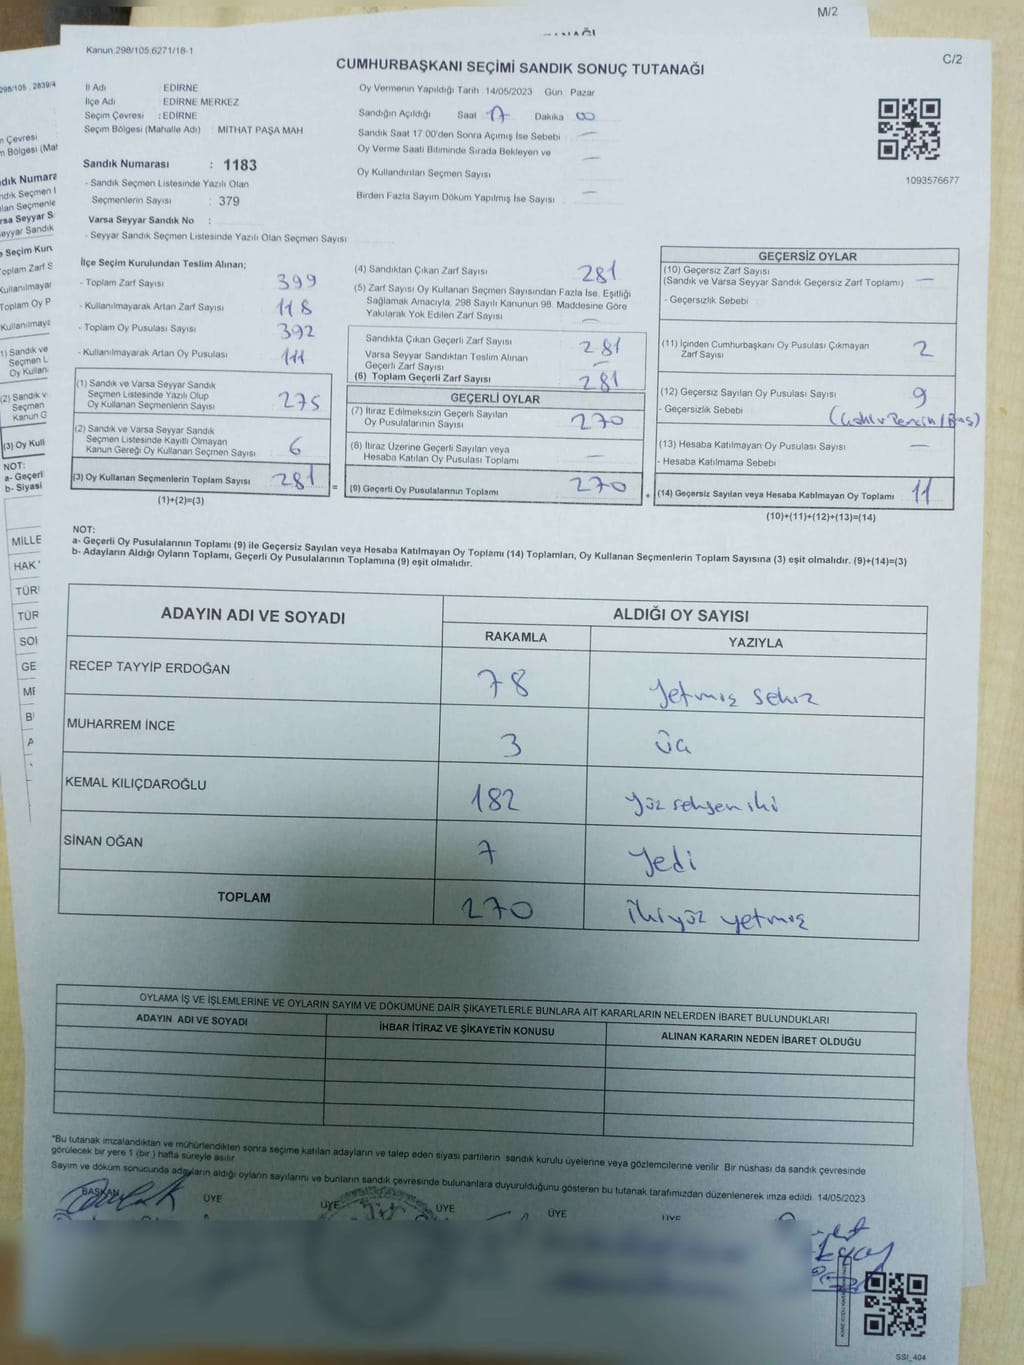 M/2
Kanun,298/105.6271/18-1
C/2
CUMHURBAŞKANI SEÇİMİ SANDIK SONUÇ TUTANAĞI
İl Adı EDİRNE
İlçe Adı EDİRNE MERKEZ
Seçim Çevresi : EDİRNE
Seçim Bölgesi (Mahalle Adı) : MİTHAT PAŞA MAH
Sandık Numarası : 1183
- Sandık Seçmen Listesinde Yazılı Olan
Seçmenlerin Sayısı : 379
Varsa Seyyar Sandık No :
- Seyyar Sandık Seçmen Listesinde Yazılı Olan Seçmen Sayısı
Oy Vermenin Yapıldığı Tarih 14/05/2023 Gün Pazar
Sandığın Açıldığı Saat : 17 Dakika 00
Sandık Saat 17 00'den Sonra Açımış İse Sebebi —
Oy Verme Saati Bitiminde Sırada Bekleyen ve
Oy Kullandırılan Seçmen Sayısı —
Birden Fazla Sayım Döküm Yapılmış İse Sayısı —
1093576677
İlçe Seçim Kurulundan Teslim Alınan;
- Toplam Zarf Sayısı 399
- Kullanılmayarak Artan Zarf Sayısı 118
- Toplam Oy Pusulası Sayısı 392
- Kullanılmayarak Artan Oy Pusulası 111
(1) Sandık ve Varsa Seyyar Sandık
Seçmen Listesinde Yazılı Olup
Oy Kullanan Seçmenlerin Sayısı 275
(2) Sandık ve Varsa Seyyar Sandık
Seçmen Listesinde Kayıtlı Olmayan
Kanun Gereği Oy Kullanan Seçmen Sayısı 6
(3) Oy Kullanan Seçmenlerin Toplam Sayısı 281 =
(1)+(2)=(3)
(4) Sandıktan Çıkan Zarf Sayısı 281
(5) Zarf Sayısı Oy Kullanan Seçmen Sayısından Fazla İse, Eşitliği
Sağlamak Amacıyla, 298 Sayılı Kanunun 98. Maddesine Göre
Yakılarak Yok Edilen Zarf Sayısı —
Sandıkta Çıkan Geçerli Zarf Sayısı 281
Varsa Seyyar Sandıktan Teslim Alınan
Geçerli Zarf Sayısı —
(6) Toplam Geçerli Zarf Sayısı 281
GEÇERLİ OYLAR
(7) İtiraz Edilmeksizin Geçerli Sayılan
Oy Pusulalarının Sayısı 270
(8) İtiraz Üzerine Geçerli Sayılan veya
Hesaba Katılan Oy Pusulası Toplamı —
(9) Geçerli Oy Pusulalarının Toplamı 270 +
GEÇERSİZ OYLAR
(10) Geçersiz Zarf Sayısı
(Sandık ve Varsa Seyyar Sandık Geçersiz Zarf Toplamı) —
- Geçersizlik Sebebi
(11) İçinden Cumhurbaşkanı Oy Pusulası Çıkmayan
Zarf Sayısı 2
(12) Geçersiz Sayılan Oy Pusulası Sayısı 9
- Geçersizlik Sebebi
(13) Hesaba Katılmayan Oy Pusulası Sayısı —
- Hesaba Katılmama Sebebi
(14) Geçersiz Sayılan veya Hesaba Katılmayan Oy Toplamı 11
(10)+(11)+(12)+(13)=(14)
NOT:
a- Geçerli Oy Pusulalarının Toplamı (9) ile Geçersiz Sayılan veya Hesaba Katılmayan Oy Toplamı (14) Toplamları, Oy Kullanan Seçmenlerin Toplam Sayısına (3) eşit olmalıdır. (9)+(14)=(3)
b- Adayların Aldığı Oyların Toplamı, Geçerli Oy Pusulalarının Toplamına (9) eşit olmalıdır.
ADAYIN ADI VE SOYADI ALDIĞI OY SAYISI
RAKAMLA YAZIYLA
RECEP TAYYİP ERDOĞAN 78 Yetmiş sekiz
MUHARREM İNCE 3 Üç
KEMAL KILIÇDAROĞLU 182 Yüz seksen iki
SİNAN OĞAN 7 Yedi
TOPLAM 270 İkiyüz yetmiş
OYLAMA İŞ VE İŞLEMLERİNE VE OYLARIN SAYIM VE DÖKÜMÜNE DAİR ŞİKAYETLERLE BUNLARA AİT KARARLARIN NELERDEN İBARET BULUNDUKLARI
ADAYIN ADI VE SOYADI İHBAR İTİRAZ VE ŞİKAYETİN KONUSU ALINAN KARARIN NEDEN İBARET OLDUĞU
"Bu tutanak imzalandıktan ve mühürlendikten sonra seçime katılan adayların ve talep eden siyasi partilerin sandık kurulu üyelerine veya gözlemcilerine verilir Bir nüshası da sandık çevresinde
görülecek bir yere 1 (bir ) hafta süreyle asılır
Sayım ve döküm sonucunda adayların aldığı oyların sayılarını ve bunların sandık çevresinde bulunanlara duyurulduğunu gösteren bu tutanak tarafımızdan düzenlenerek imza edildi. 14/05/2023
BAŞKAN ÜYE ÜYE ÜYE ÜYE ÜYE
SSI_404